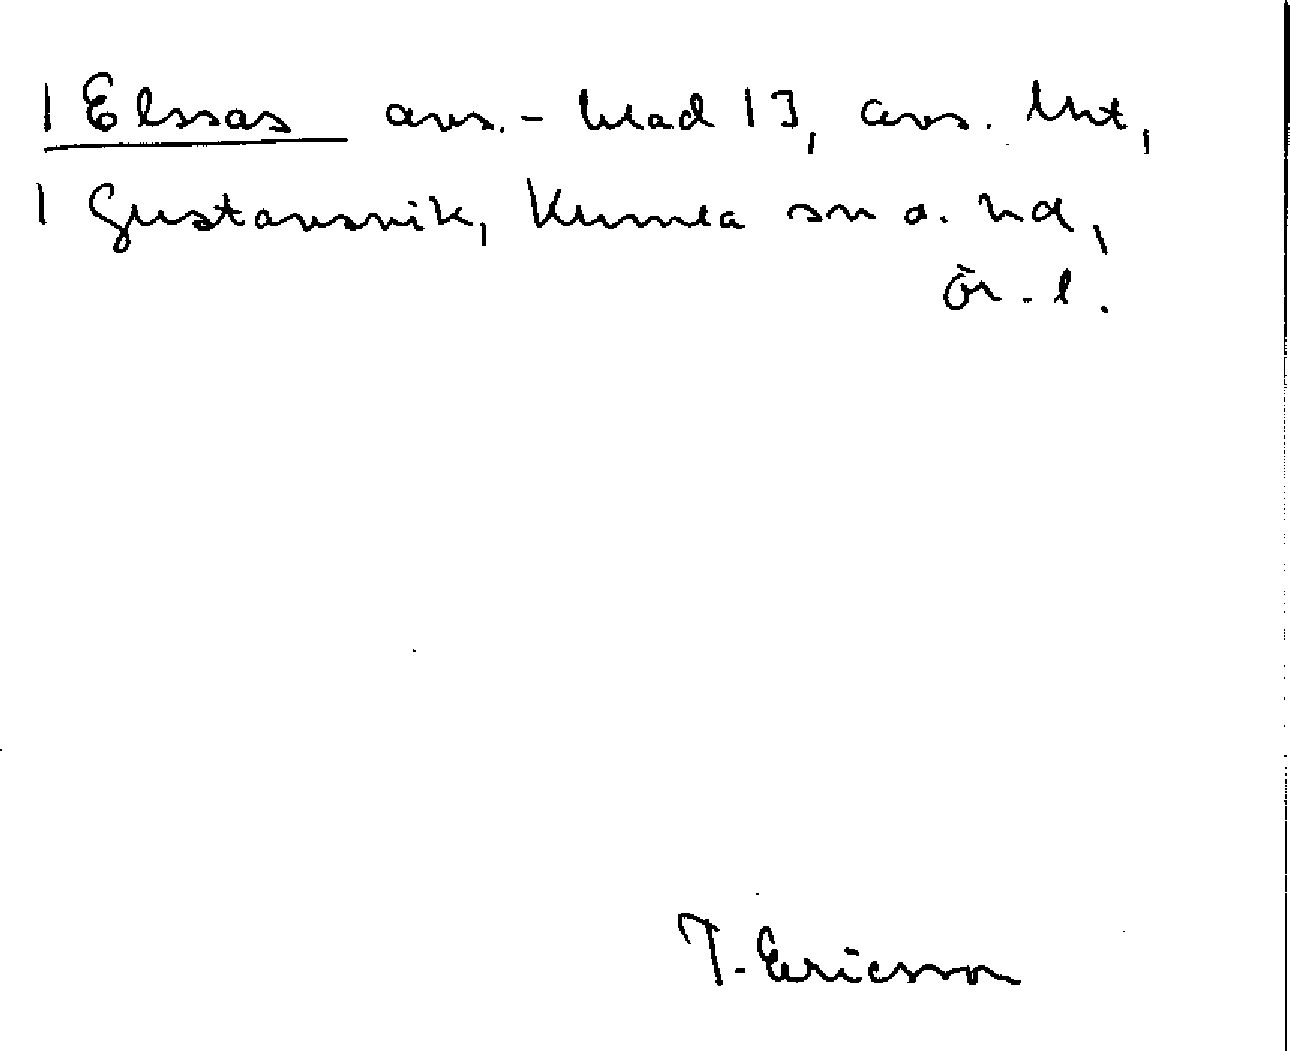 1 Elssas avs.- blad 13, avs. lht,
1 Gustavsvik, Kumla sn o. hd,
Ör. l.
T. Ericsson